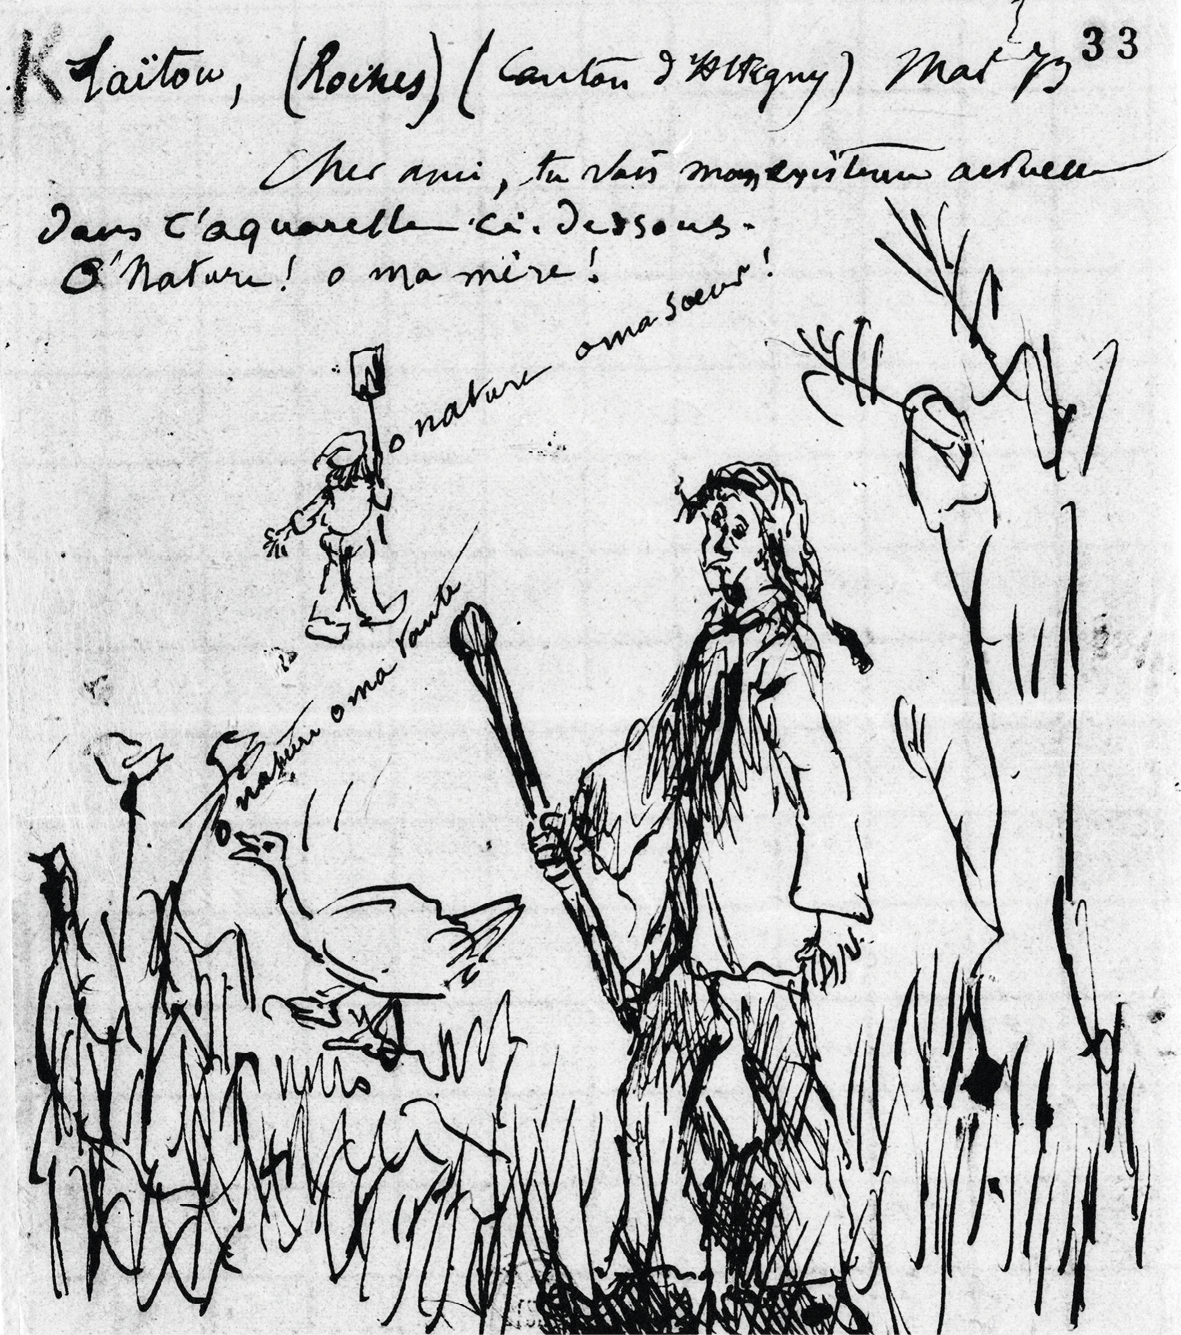 33
K Laïtou, (Roches) (Canton d'Attigny) Mai 73
Cher ami, tu vois mon existence actuelle
dans l'aquarelle ci-dessous.
O Nature! o ma mère!
o nature o ma soeur!
o nature o ma tante